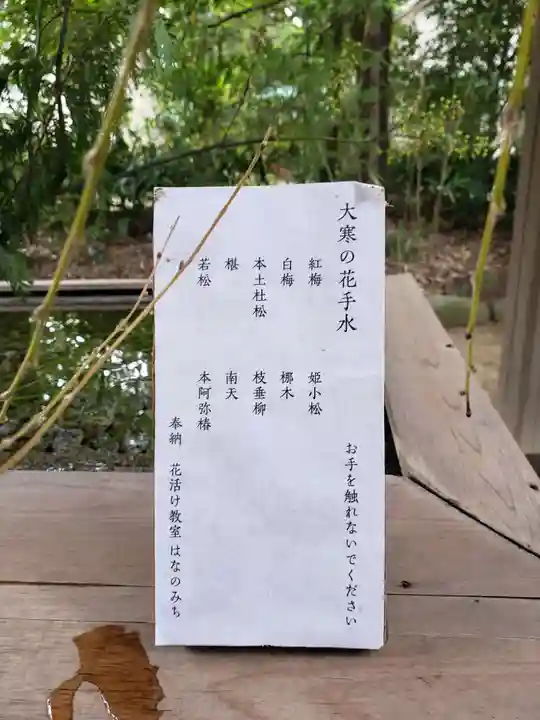 大寒の花手水
お手を触れないでください
紅梅
姫小松
白梅
梛木
本土杜松
枝垂柳
椹
南天
若松
本阿弥椿
奉納 花活け教室 はなのみち